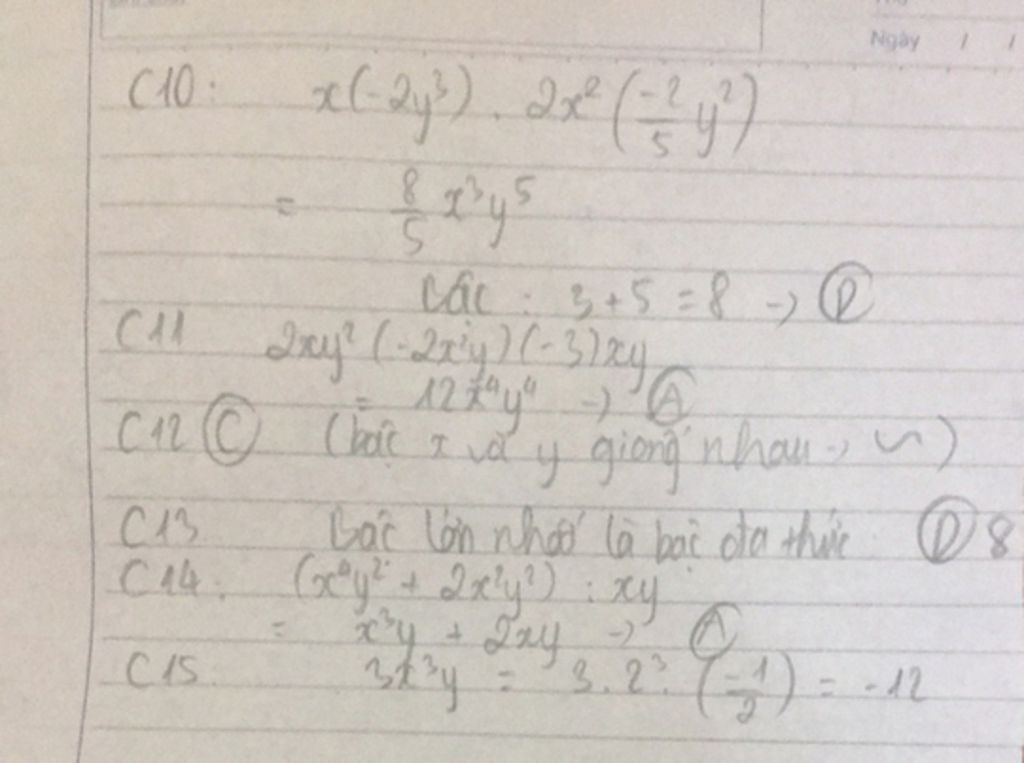 Ngày / /
C10: x(-2y³) . 2x² (-2/5 y²)
= 8/5 x³y⁵
Bậc : 3 + 5 = 8 → Ⓓ
C11 2xy² (-2x²y) (-3)xy
= 12x⁴y⁴ → Ⓐ
C12 Ⓒ (bậc x và y giống nhau → ∽)
C13 Bậc lớn nhất là bậc đa thức Ⓓ 8
C14. (x⁴y² + 2x²y²) : xy
= x³y + 2xy → Ⓐ
C15. 3x³y = 3 . 2³ . (-1/2) = -12